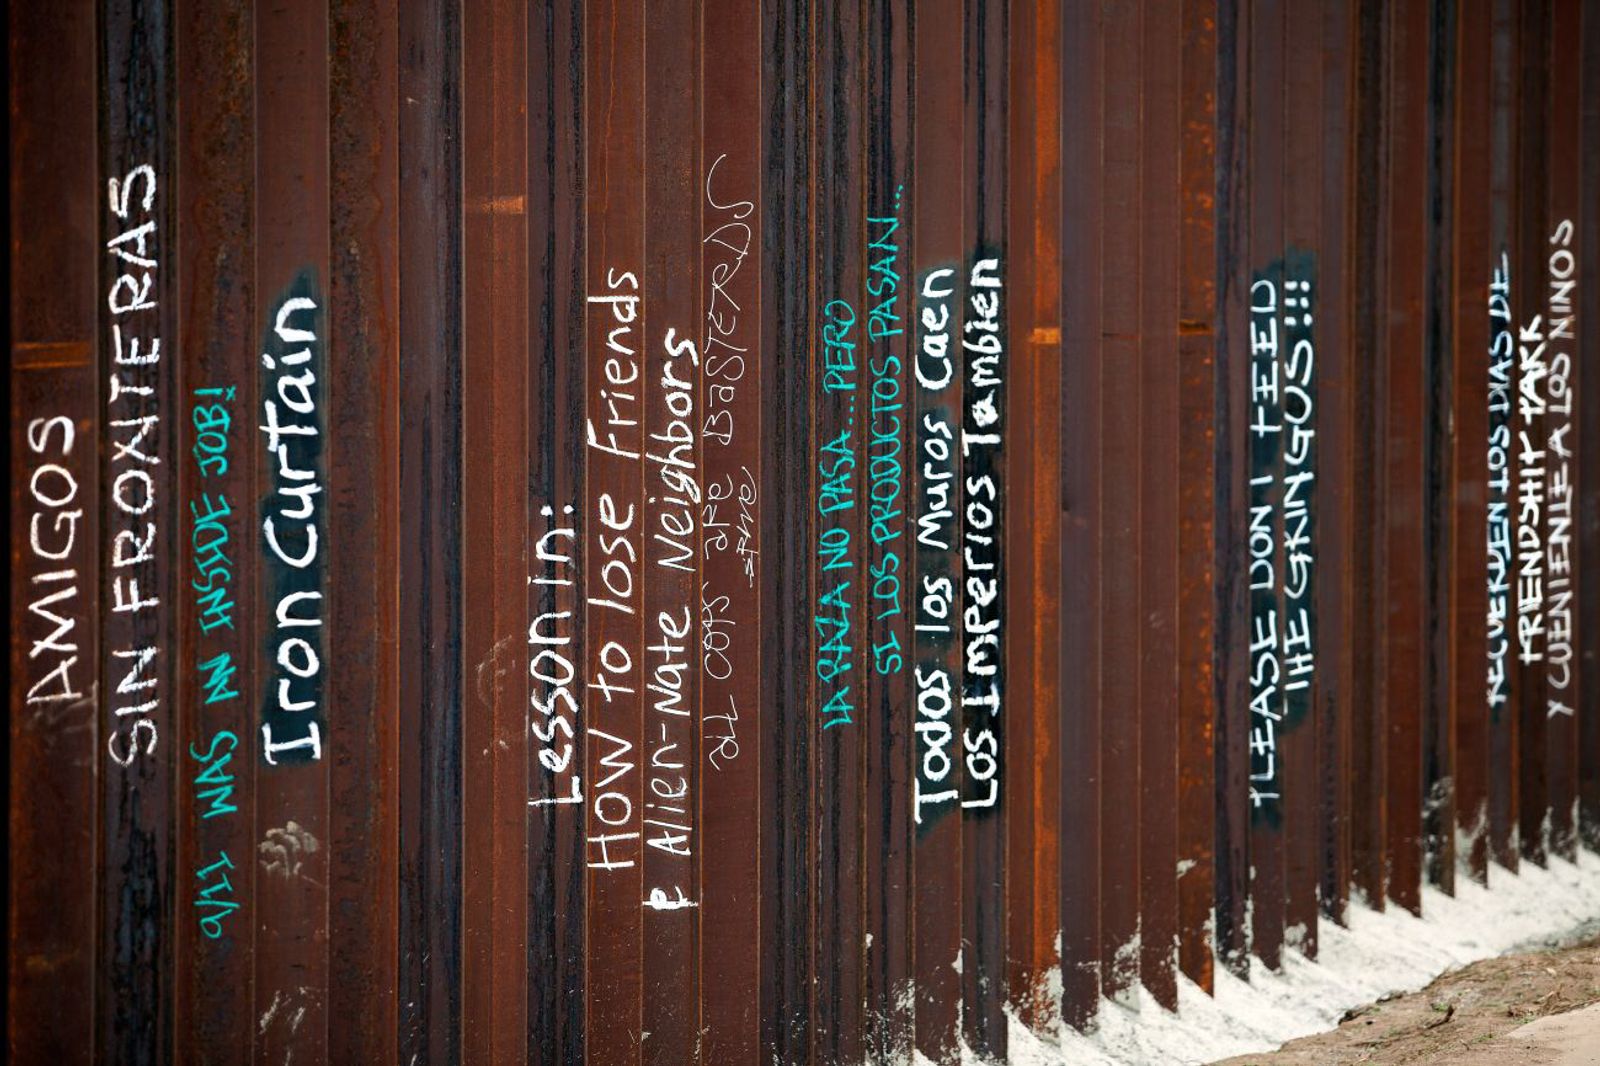 AMIGOS
SIN FRONTERAS
9/11 WAS AN INSIDE JOB!
Iron CurTain
Lesson in:
HOW to lose Friends
& Alien-Nate Neighbors
aLL COPS are BaSTERDS
LA RAZA NO PASA...PERO
SI LOS PRODUCTOS PASAN...
Todos los Muros Caen
Los Imperios Tambien
PLEASE DON'T FEED
THE GRINGOS!!!
RECUERDEN LOS DIAS DE
FRIENDSHIP PARK
Y CUENTENLE A LOS NINOS